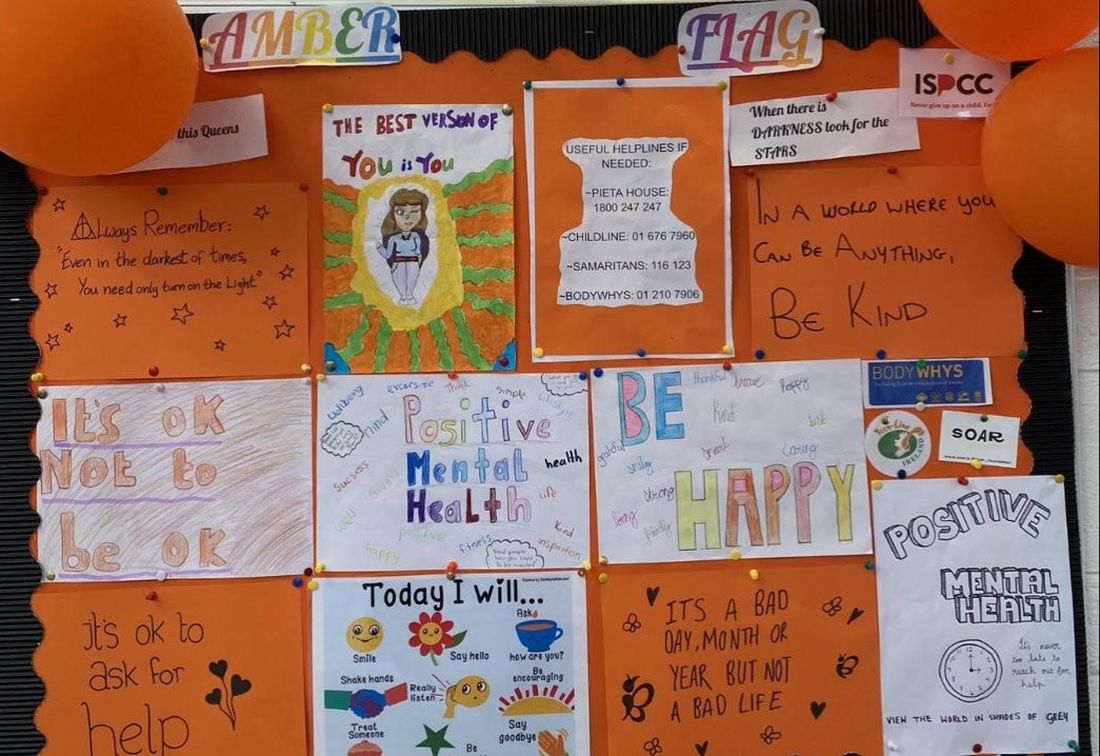 AMBER FLAG
this Queens
THE BEST VERSION OF
YOU is YOU
USEFUL HELPLINES IF
NEEDED:
~PIETA HOUSE:
1800 247 247
~CHILDLINE: 01 676 7960
~SAMARITANS: 116 123
~BODYWHYS: 01 210 7906
When there is
DARKNESS look for the
STARS
ISPCC
Never give up on a child. Ever
ALways Remember:
"Even in the darkest of times,
You need only turn on the Light"
IN A WORLD WHERE YOU
CAN BE ANYTHING,
BE KIND
It's ok
Not to
be ok
wellbeing
excersize
Think
Simple
Lifestyle
mind
Positive
Mental
Health
health
success
life
well
positive
kind
happy
fitness
inspiration
BE
thankful
brave
happy
kind
best
grateful
smart
Caring
smiley
strong
loving
friendly
HAPPY
BODYWHYS
IRELAND
SOAR
it's ok to
ask for
help
Today I will...
Smile
Say hello
Ask
how are you?
Shake hands
Really
listen
Be
encouraging
Treat
Someone
Be
Say
goodbye
ITS A BAD
DAY, MONTH OR
YEAR BUT NOT
A BAD LIFE
POSITIVE
MENTAL
HEALTH
It's never
too late to
reach out for
help.
VIEW THE WORLD IN SHADES OF GREY